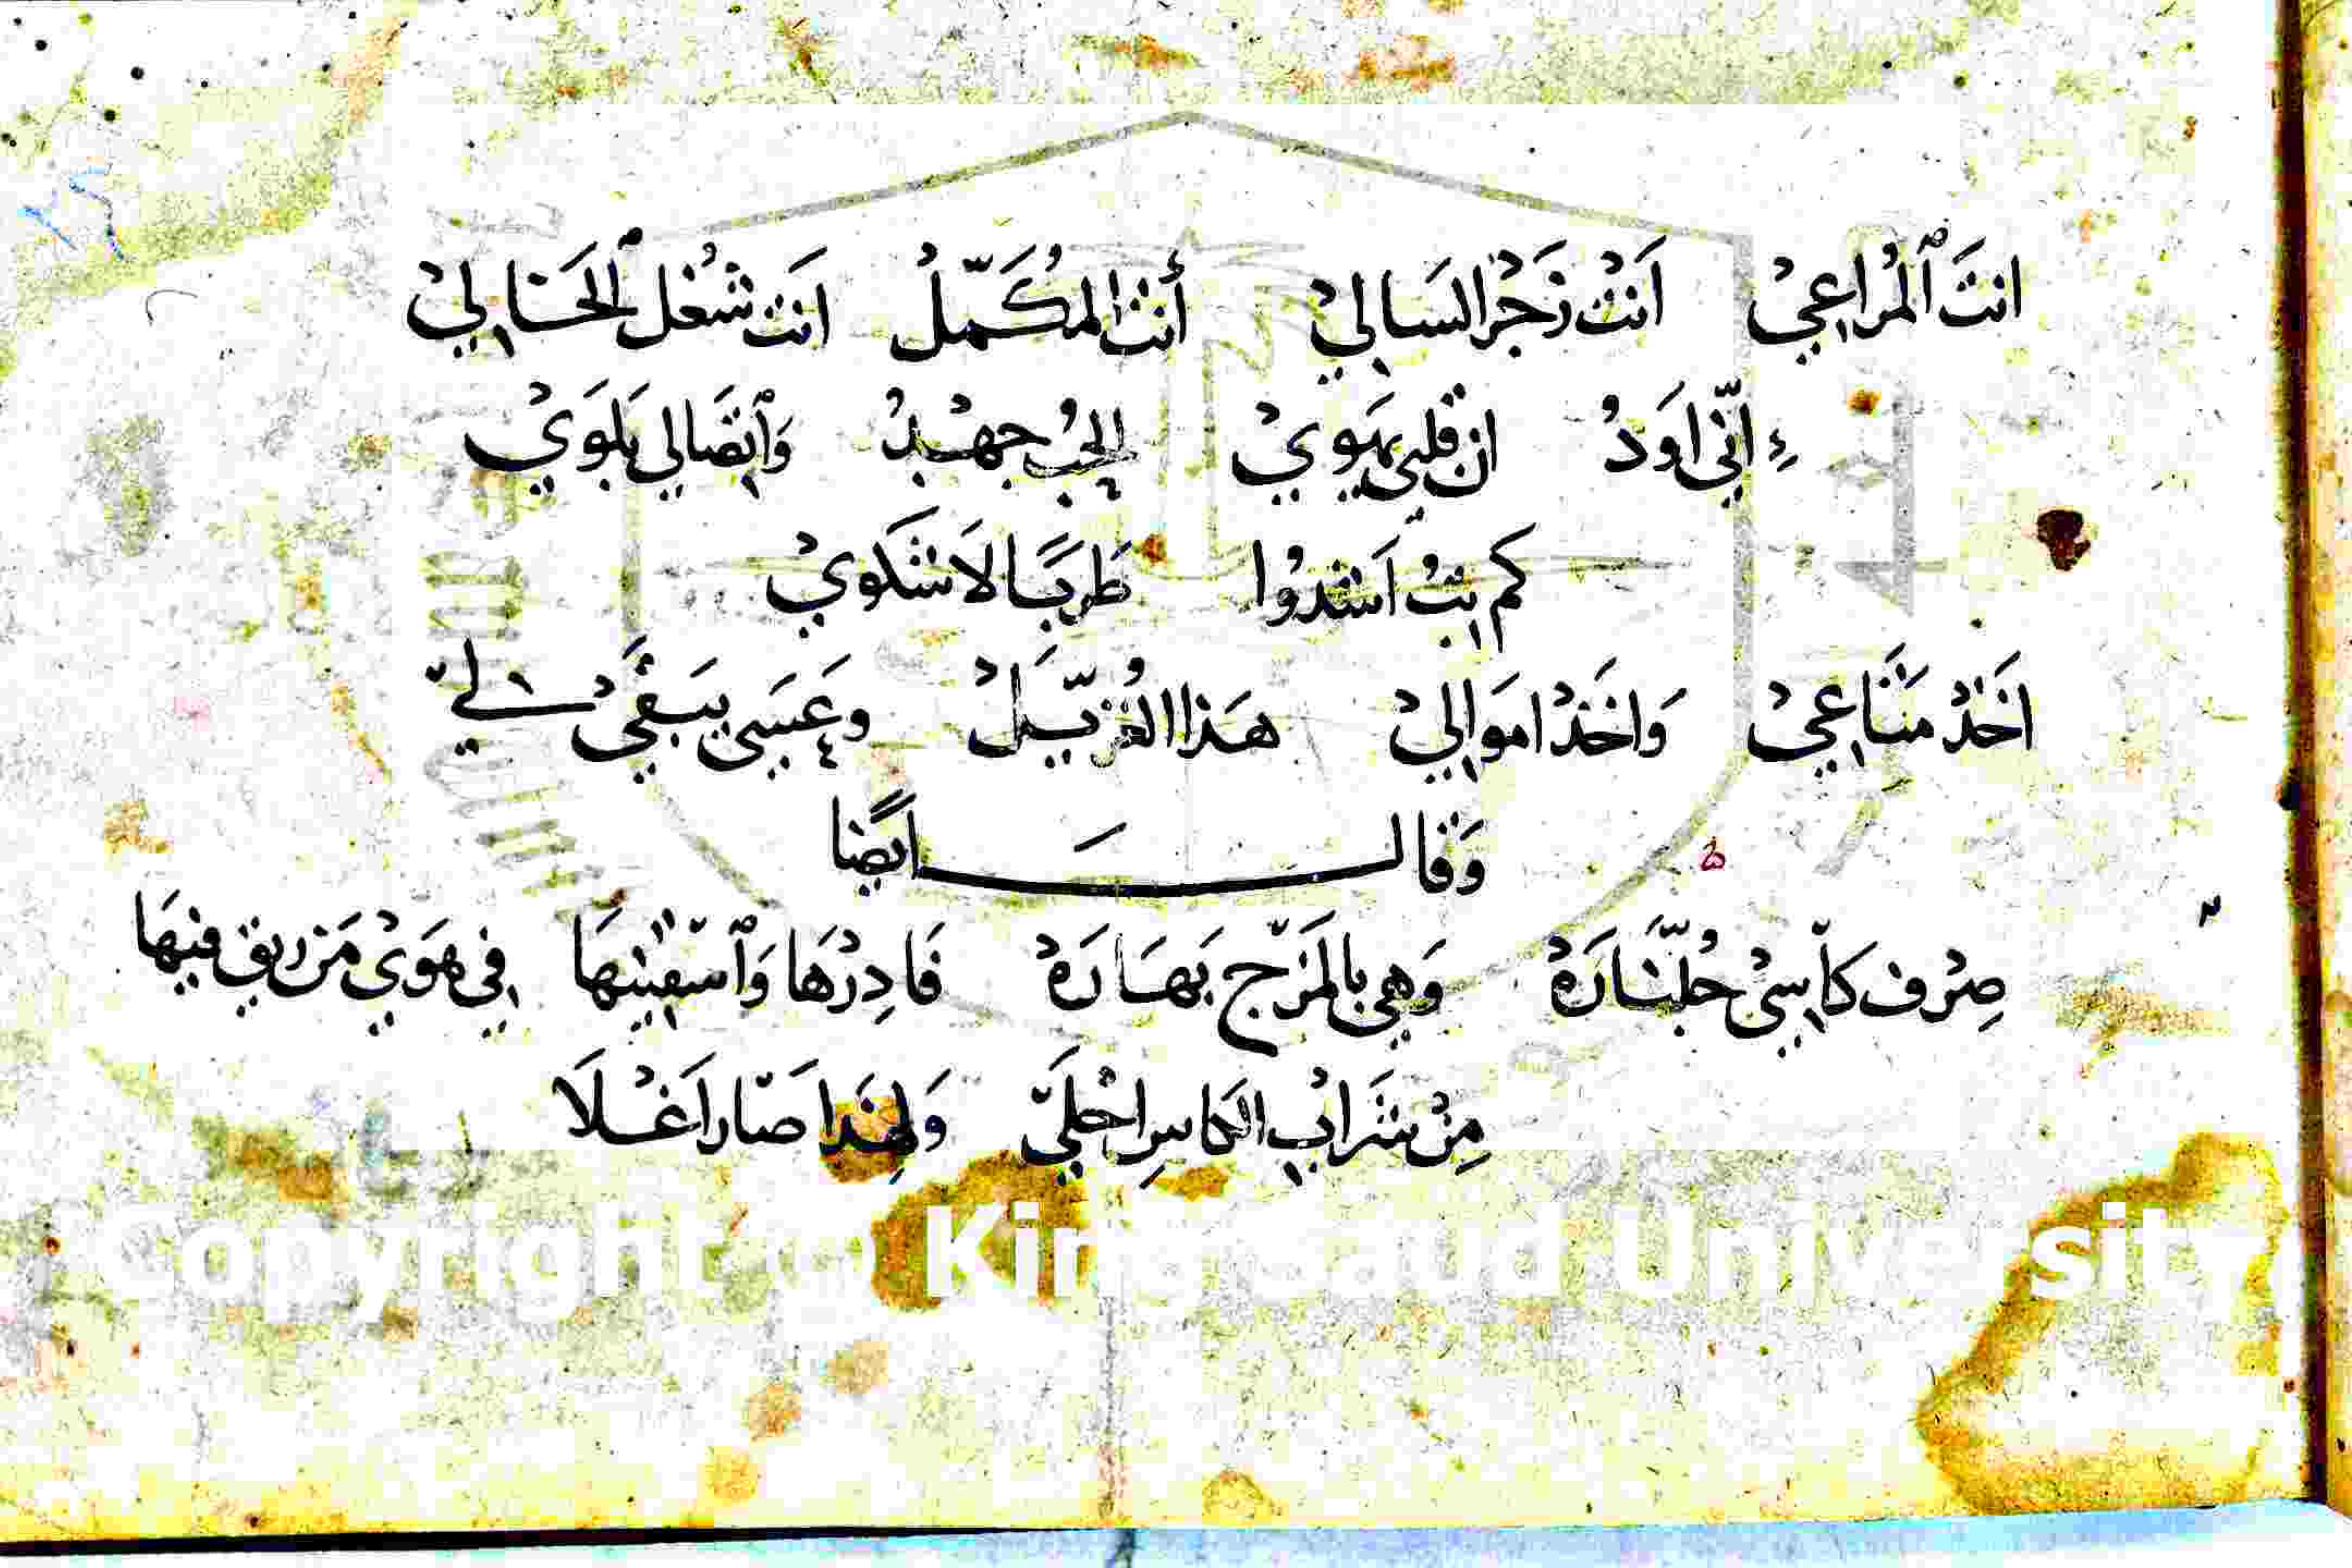 انتَ ٱلمُراعِيْ اَنتْ زَجْر السَالِيْ أنتْ المُكَمّلُ اَنت شُغْل ٱلحَالِيْ
إنّي اَودُ ان قلبي يَهَوِيْ الحِبُ جهْدُ وَٱيضَا لي بَلوَيْ
كم بِتُ اَشدُوا طَرِبًا لَا شَكوِيْ
اخَذْ مَنَاعِيْ وَاخَذْ اموَالِيْ هَذا الغُزيّلْ وعَسَى يبَقَيْ لي
وَقالَ ايضًا
صِرْف كاّسِيْ جُلّنَارَهْ وَهي بالمَزّج بَهَارَهْ فَادِرْهَا وَٱسقِينهَا في هَوَيْ مَن ريق فيهَا
مِنْ شَرَابْ الكاسِ احْلَيّ وَلِهَذا صَار اَغْلَا
Copyright © King Saud University